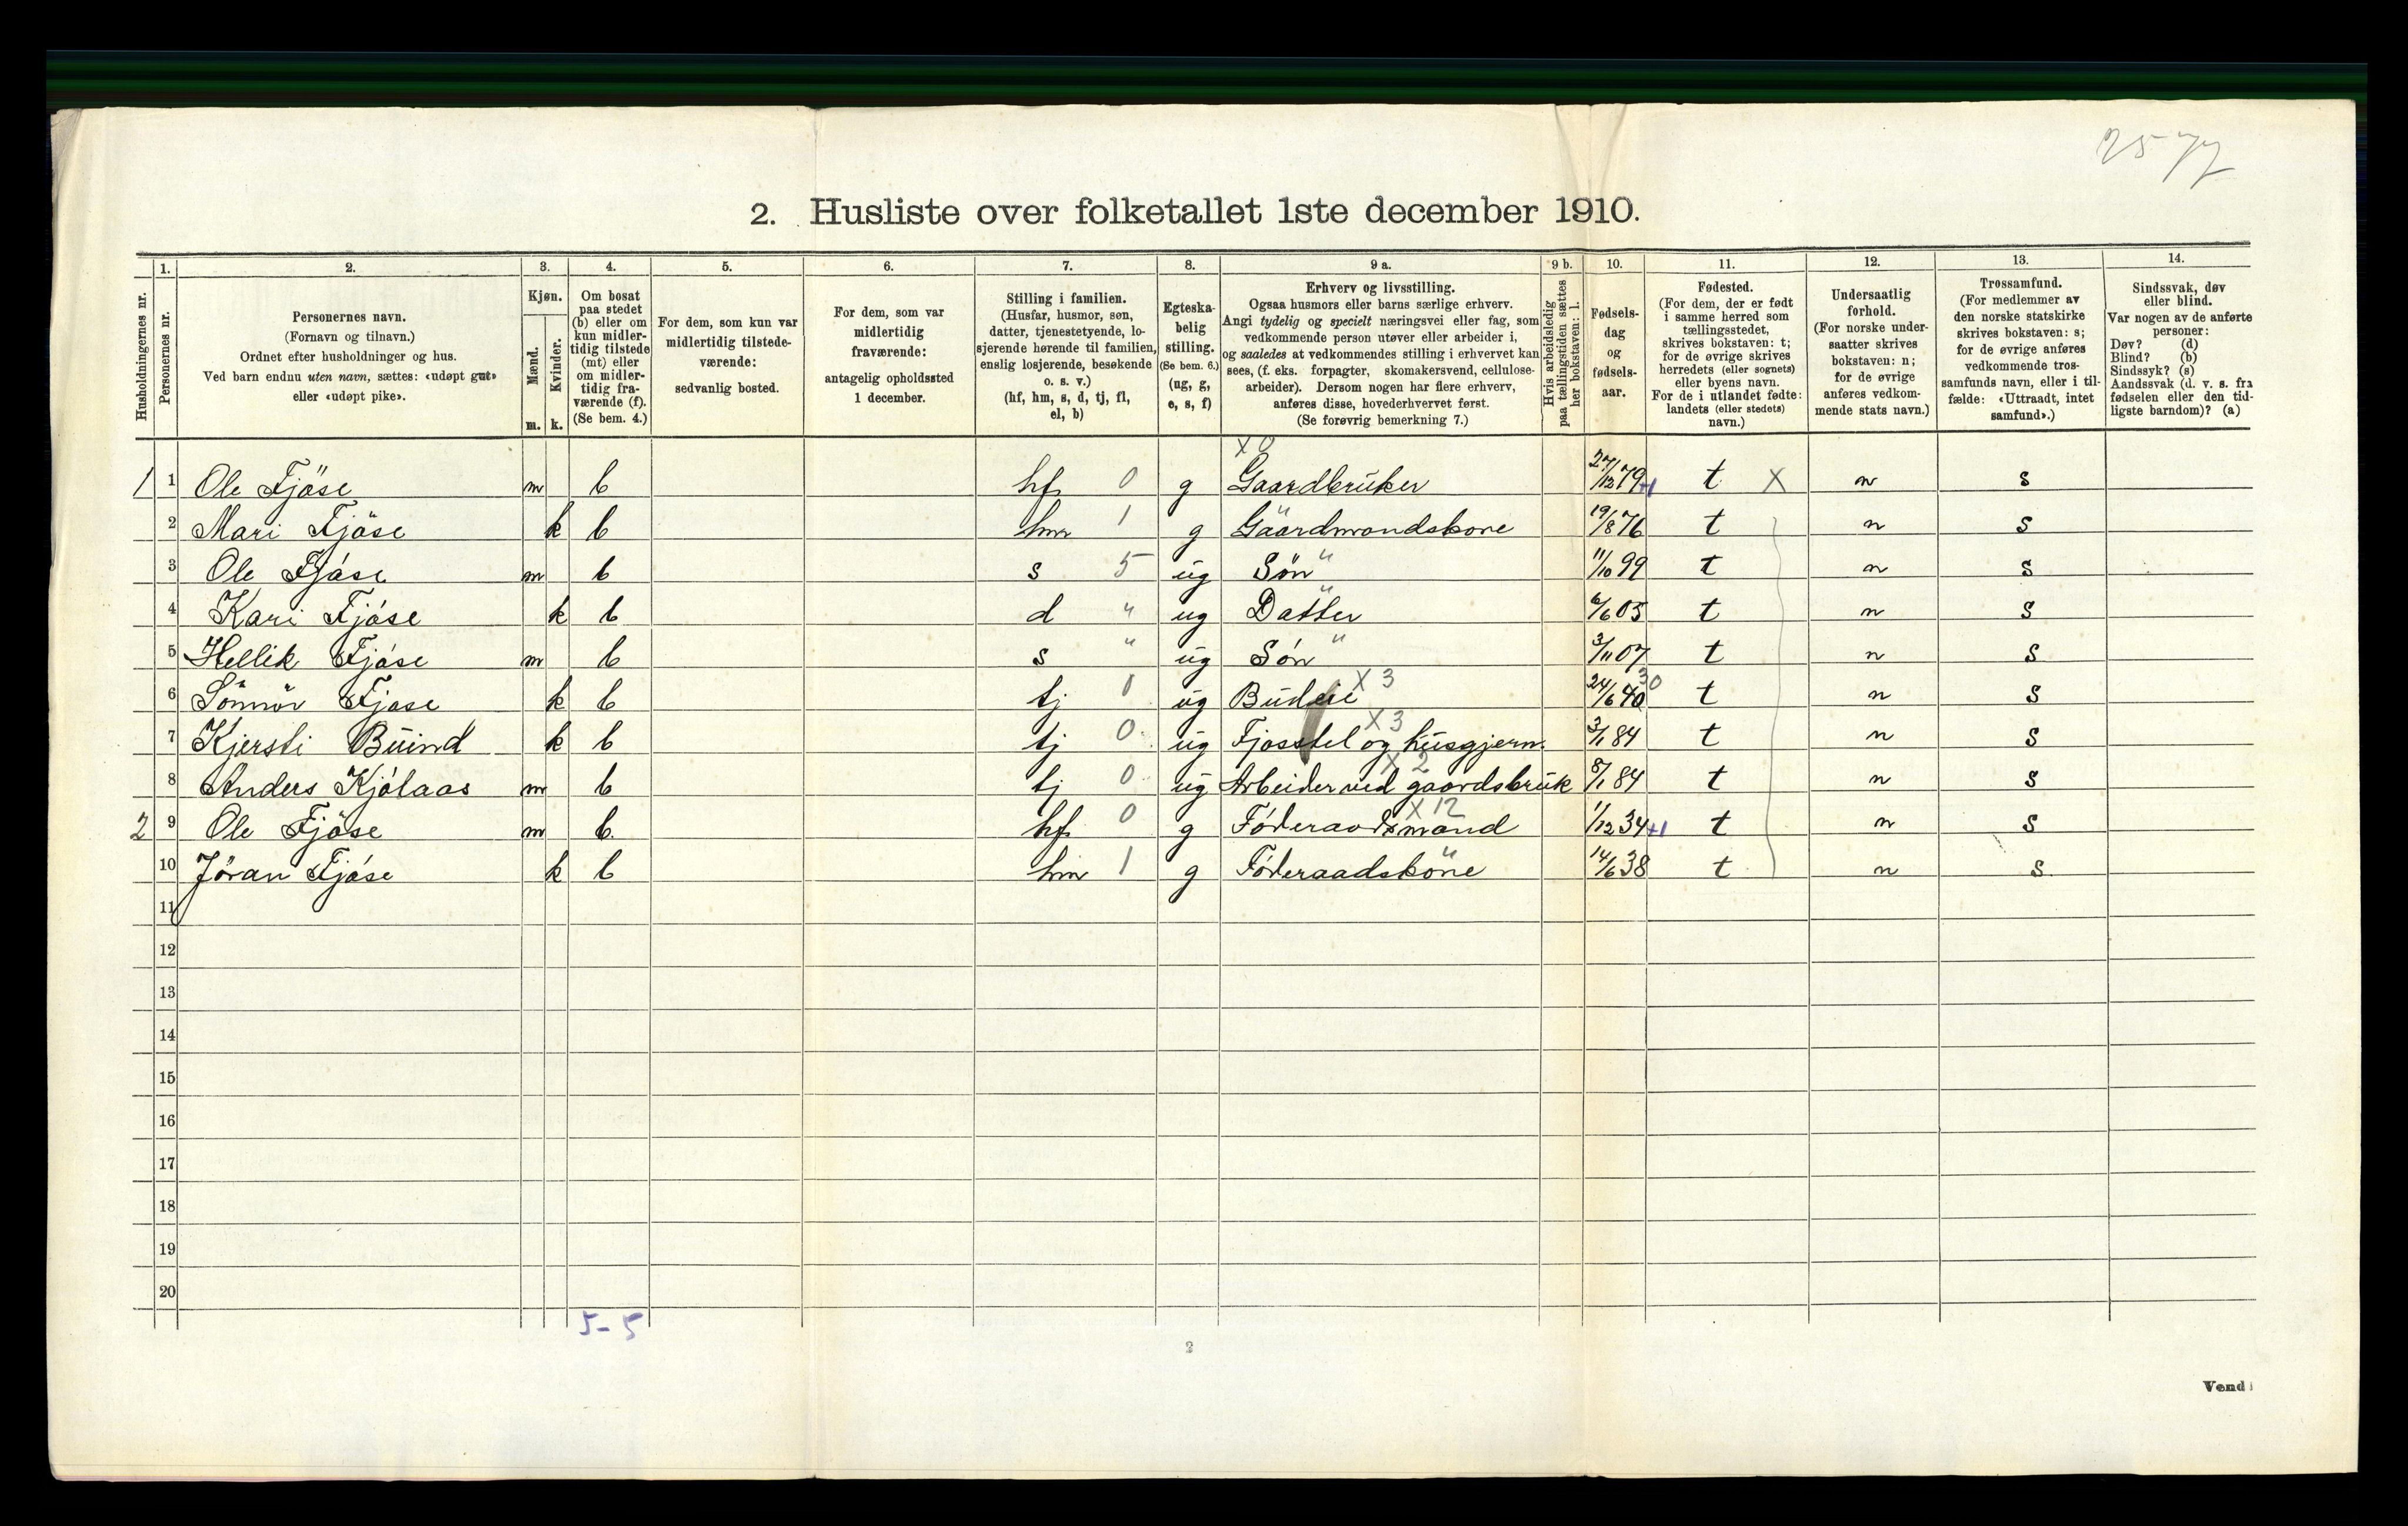 2577
2. Husliste over folketallet 1ste december 1910.
Husholdningernes nr.
1.
Personernes nr.
2.
Personernes navn.
(Fornavn og tilnavn.)
Ordnet efter husholdninger og hus.
Ved barn endnu uten navn, sættes: «udøpt gut»
eller «udøpt pike».
3.
Kjøn.
Mænd.
Kvinder.
m. k.
4.
Om bosat
paa stedet
(b) eller om
kun midler-
tidig tilstede
(mt) eller
om midler-
tidig fra-
værende (f).
(Se bem. 4.)
5.
For dem, som kun var
midlertidig tilstede-
værende:
sedvanlig bosted.
6.
For dem, som var
midlertidig
fraværende:
antagelig opholdssted
1 december.
7.
Stilling i familien.
(Husfar, husmor, søn,
datter, tjenestetyende, lo-
sjerende hørende til familien,
enslig losjerende, besøkende
o. s. v.)
(hf, hm, s, d, tj, fl,
el, b)
8.
Egteska-
belig
stilling.
(Se bem. 6.)
(ug, g,
e, s, f)
9 a.
Erhverv og livsstilling.
Ogsaa husmors eller barns særlige erhverv.
Angi tydelig og specielt næringsvei eller fag, som
vedkommende person utøver eller arbeider i,
og saaledes at vedkommendes stilling i erhvervet kan
sees, (f. eks. forpagter, skomakersvend, cellulose-
arbeider). Dersom nogen har flere erhverv,
anføres disse, hovederhvervet først.
(Se forøvrig bemerkning 7.)
9 b.
Hvis arbeidsledig
paa tællingstiden sættes
her bokstaven: l.
10.
Fødsels-
dag
og
fødsels-
aar.
11.
Fødested.
(For dem, der er født
i samme herred som
tællingsstedet,
skrives bokstaven: t;
for de øvrige skrives
herredets (eller sognets)
eller byens navn.
For de i utlandet fødte:
landets (eller stedets)
navn.)
12.
Undersaatlig
forhold.
(For norske under-
saatter skrives
bokstaven: n;
for de øvrige
anføres vedkom-
mende stats navn.)
13.
Trossamfund.
(For medlemmer av
den norske statskirke
skrives bokstaven: s;
for de øvrige anføres
vedkommende tros-
samfunds navn, eller i til-
fælde: «Uttraadt, intet
samfund».)
14.
Sindssvak, døv
eller blind.
Var nogen av de anførte
personer:
Døv? (d)
Blind? (b)
Sindssyk? (s)
Aandssvak (d. v. s. fra
fødselen eller den tid-
ligste barndom)? (a)
X 0
1 1 Ole Fjöse m b hf 0 g Gaardbruker 27/12 79 +1 t X n s
2 Mari Fjöse k b hm 1 g Gaardmandskone " 19/8 76 t n s
3 Ole Fjóse m b s 5 ug Sön " 11/10 99 t n s
4 Kari Fjóse k b d " ug Datter " 6/6 05 t n s
5 Hellik Fjóse m b s " ug Són " 3/11 07 t n s
6 Sönnöv Fjose k b tj 0 ug Budeie X 3 24/6 40 30 t n s
7 Kjersti Buind k b tj 0 ug Fjosstel og husgjern. X 3 3/1 84 t n s
8 Anders Kjólaas m b tj 0 ug Arbeider ved gaardsbruk X 2 8/1 84 t n s
2 9 Ole Fjöse m b hf 0 g Fóderaadsmand X 12 1/12 34 +1 t n s
10 Jöran Fjóse k b hm 1 g Fóderaadskone " 14/6 38 t n s
11
12
13
14
15
16
17
18
19
20
5-5
2
Vend